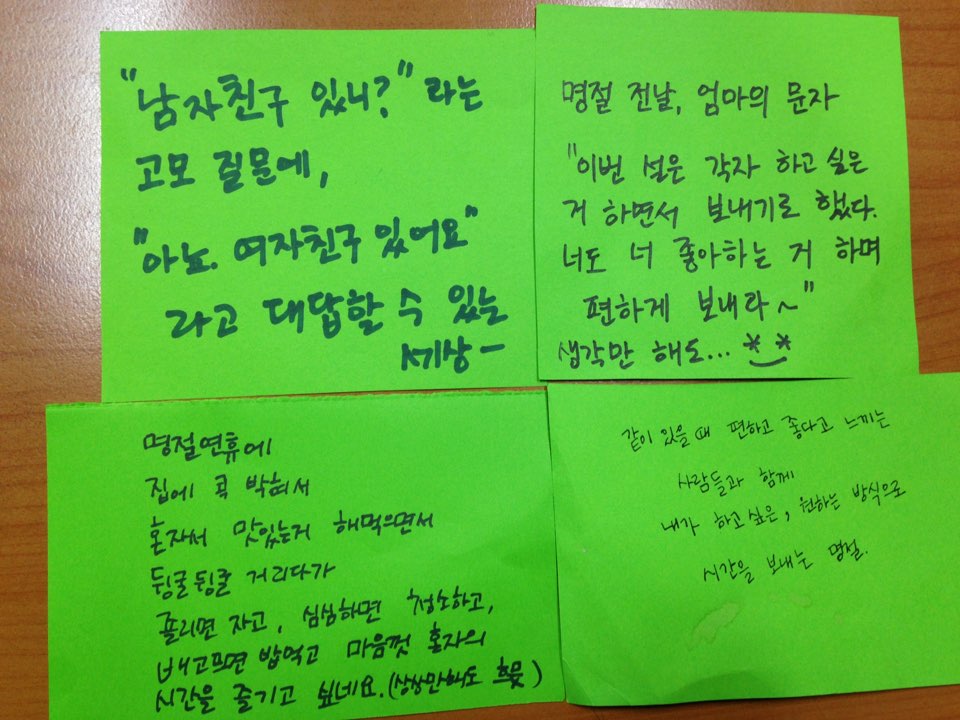 "남자친구 있니?" 라는
고모 질문에,
"아뇨. 여자친구 있어요"
라고 대답할 수 있는
세상 —
명절 전날, 엄마의 문자
"이번 설은 각자 하고 싶은
거 하면서 보내기로 했다.
너도 너 좋아하는 거 하며
편하게 보내라~"
생각만 해도... *‿*
명절연휴에
집에 콕 박혀서
혼자서 맛있는거 해먹으면서
뒹굴뒹굴 거리다가
졸리면 자고, 심심하면 청소하고,
배고프면 밥먹고 마음껏 혼자의
시간을 즐기고 싶네요. (상상만해도 흐뭇)
같이 있을 때 편하고 좋다고 느끼는
사람들과 함께
내가 하고싶은, 원하는 방식으로
시간을 보내는 명절.